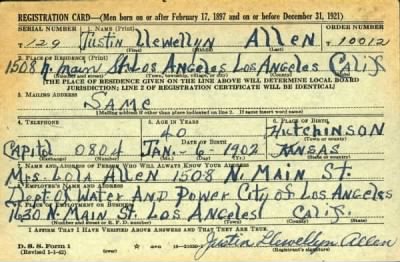 REGISTRATION CARD—(Men born on or after February 17, 1897 and on or before December 31, 1921)
SERIAL NUMBER 1. NAME (Print) ORDER NUMBER
129 Justin Llewellyn Allen 10012
(First) (Middle) (Last)
2. PLACE OF RESIDENCE (Print)
1508 N. Main St. Los Angeles Los Angeles Calif.
(Number and street) (Town, township, village, or city) (County) (State)
[THE PLACE OF RESIDENCE GIVEN ON THE LINE ABOVE WILL DETERMINE LOCAL BOARD
JURISDICTION; LINE 2 OF REGISTRATION CERTIFICATE WILL BE IDENTICAL]
3. MAILING ADDRESS
SAME
(Mailing address if other than place indicated on line 2. If same insert word same)
4. TELEPHONE 5. AGE IN YEARS 6. PLACE OF BIRTH
40 Hutchinson
DATE OF BIRTH (Town or county)
Capitol 0804 JAN. 6 1902 KANSAS
(Exchange) (Number) (Mo.) (Day) (Yr.) (State or country)
7. NAME AND ADDRESS OF PERSON WHO WILL ALWAYS KNOW YOUR ADDRESS
Mrs. Lola Allen 1508 N. Main St.
8. EMPLOYER'S NAME AND ADDRESS
Dept. of Water And Power City of Los Angeles
9. PLACE OF EMPLOYMENT OR BUSINESS
1630 N. Main St. Los Angeles Calif.
(Number and street or R. F. D. number) (Town) (County) (State)
I AFFIRM THAT I HAVE VERIFIED ABOVE ANSWERS AND THAT THEY ARE TRUE.
D. S. S. Form 1
(Revised 1-1-42) Justin Llewellyn Allen
(Registrant's signature)